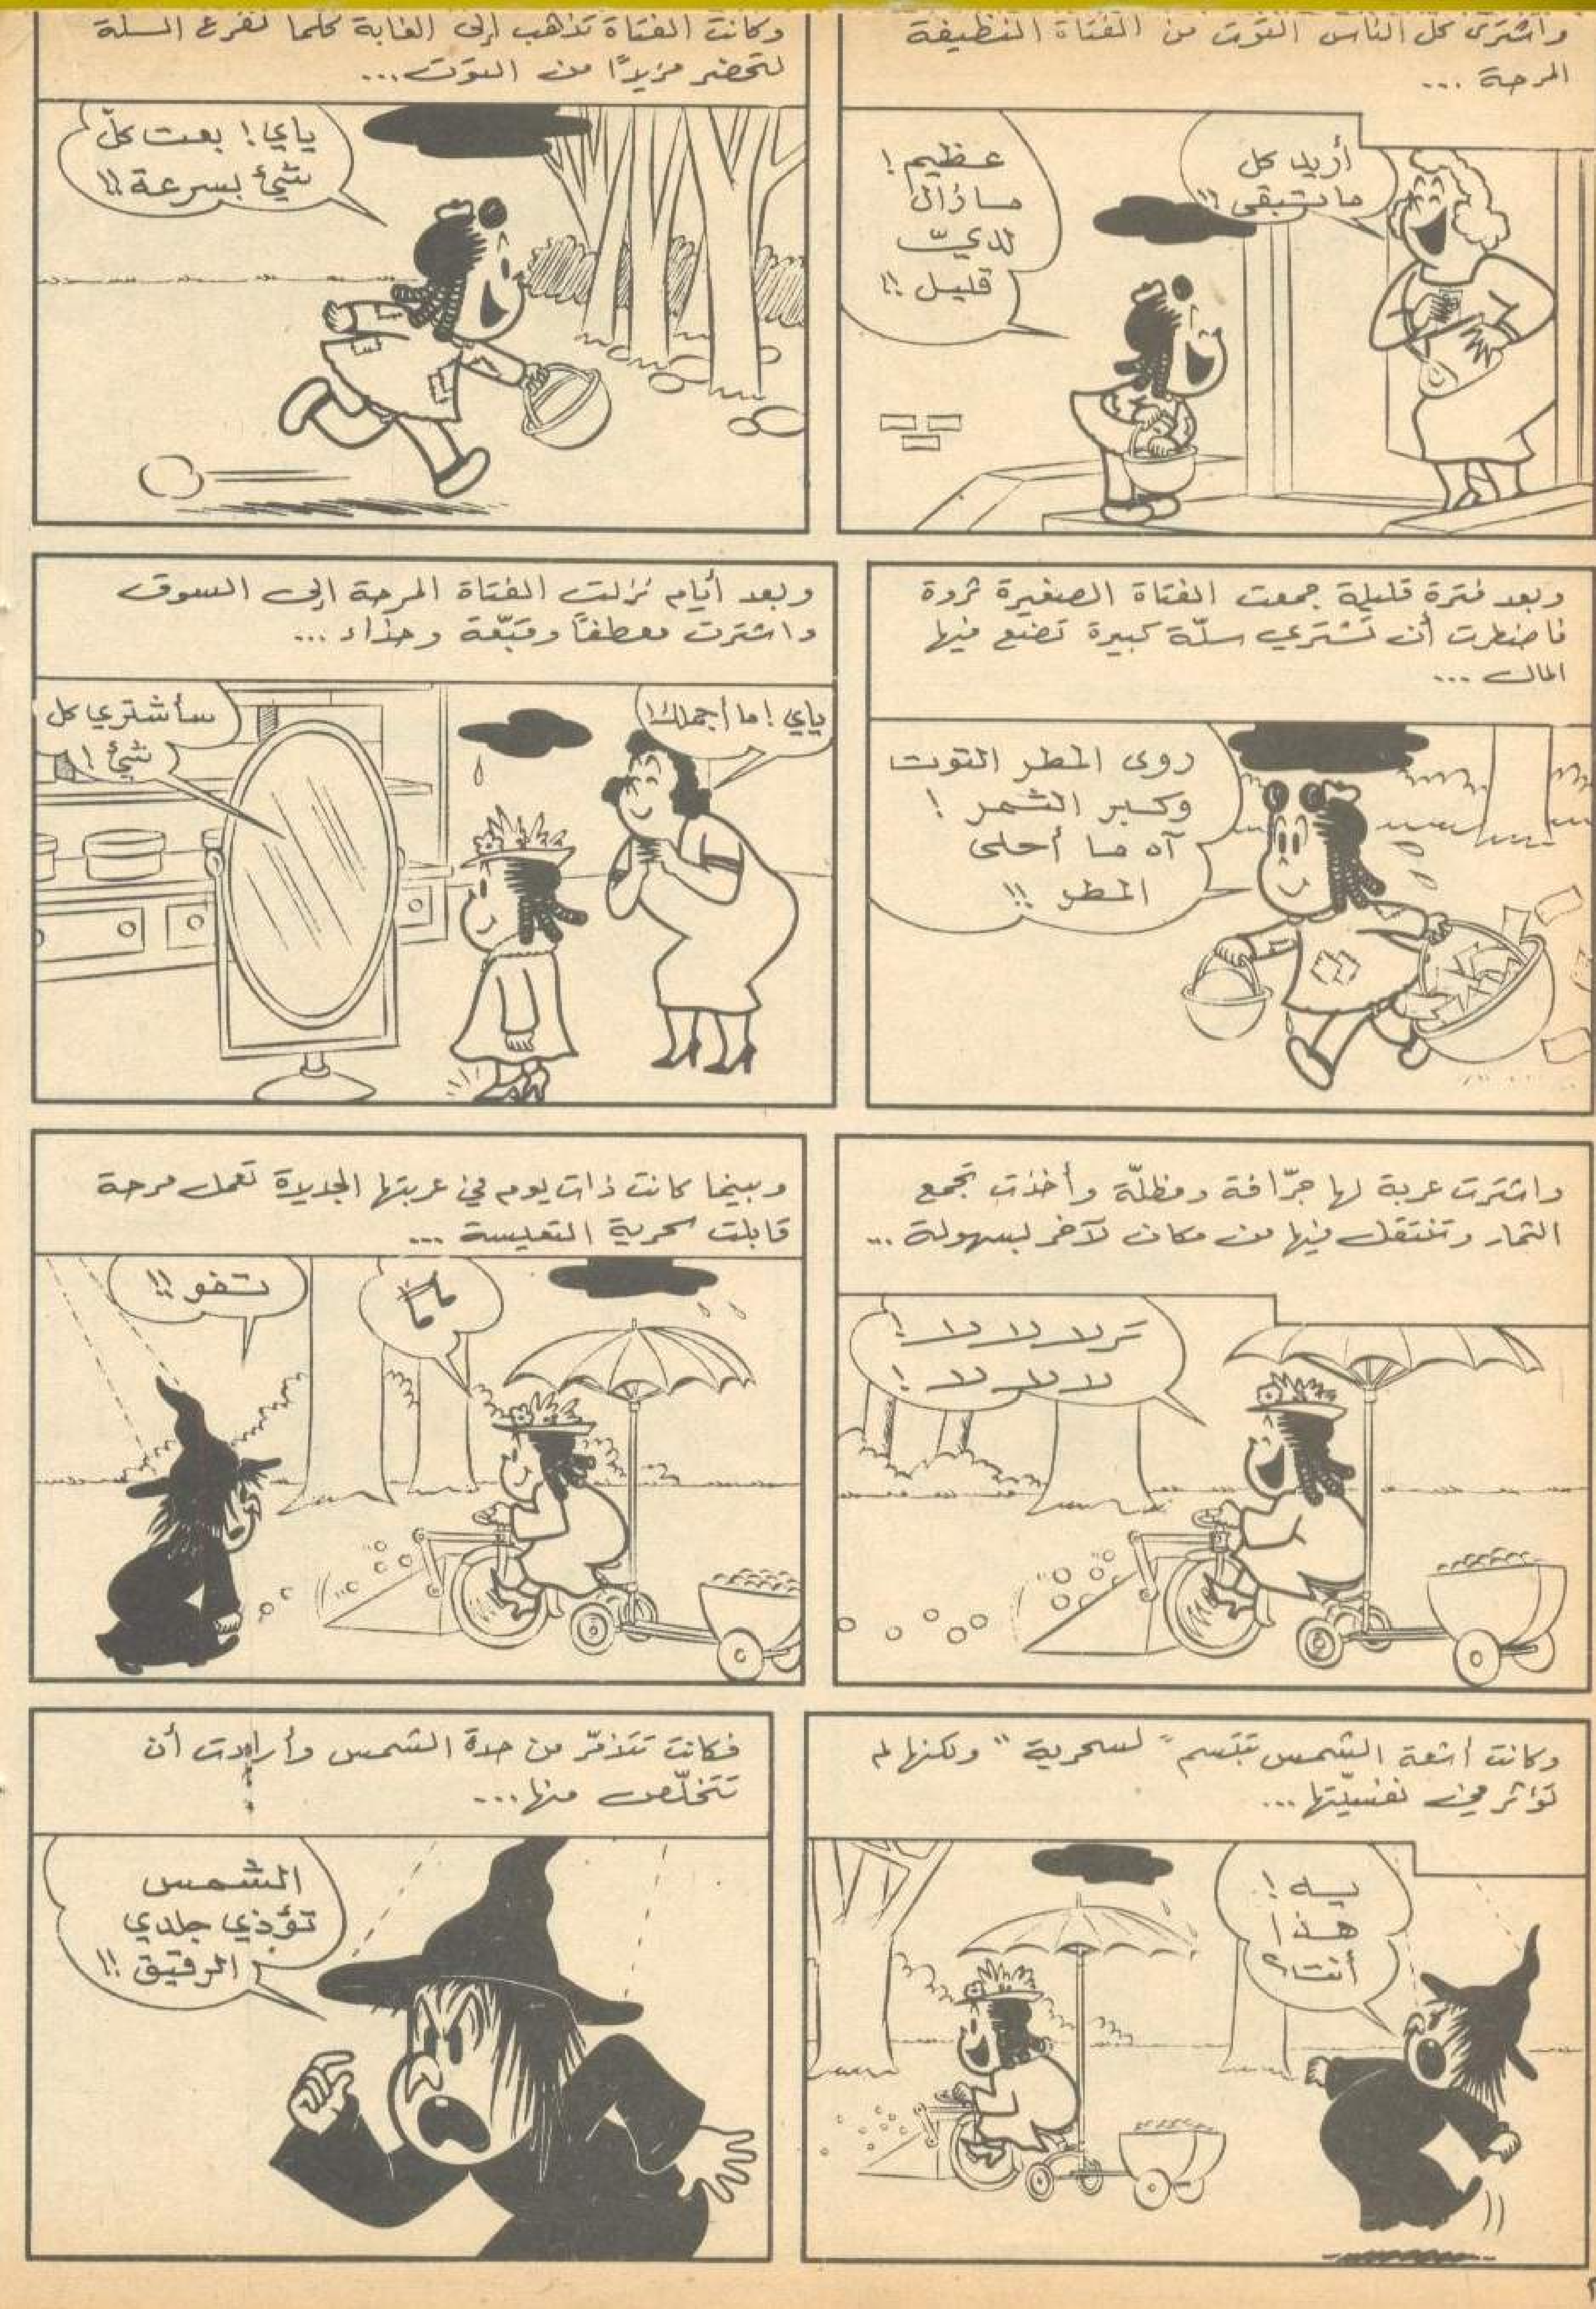 واشترى كل الناس التوت من الفتاة النظيفة
المرحة ...
أريد كل
ما تبقى !!
عظيم !
مازال
لديّ
قليل !!
وكانت الفتاة تذهب إلى الغابة كلما تفرغ السلة
لتحضر مزيدًا من التوت ...
ياي ! بعت كلّ
شيئ بسرعة !!
وبعد فترة قليلة جمعت الفتاة الصغيرة ثروة
فاضطرت أن تشتري سلّة كبيرة تضع فيها
المال ...
روى المطر التوت
وكبر الثمر !
آه ما أحلى
المطر !!
وبعد أيام نزلت الفتاة المرحة إلى السوق
واشترت معطفًا وقبّعة وحذاء ...
ياي ! ما أجملك !
سأشتري كل
شيئ !
واشترت عربة لها جرّافة ومظلّة وأخذت تجمع
الثمار وتنتقل فيها من مكان لآخر بسهولة ...
ترلا لا لا !
لا لا لا !
وبينما كانت ذات يوم في عربتها الجديدة تعمل مرحة
قابلت سحرية التعيسة ...
تفو !!
وكانت أشعة الشمس تبتسم " لسحرية " ولكنها لم
تؤثر في نفسيّتها ...
يه !
هذا
أنت ؟
فكانت تتذمّر من حدة الشمس وأرادت أن
تتخلّص منها ...
الشمس
تؤذي جلدي
الرقيق !!